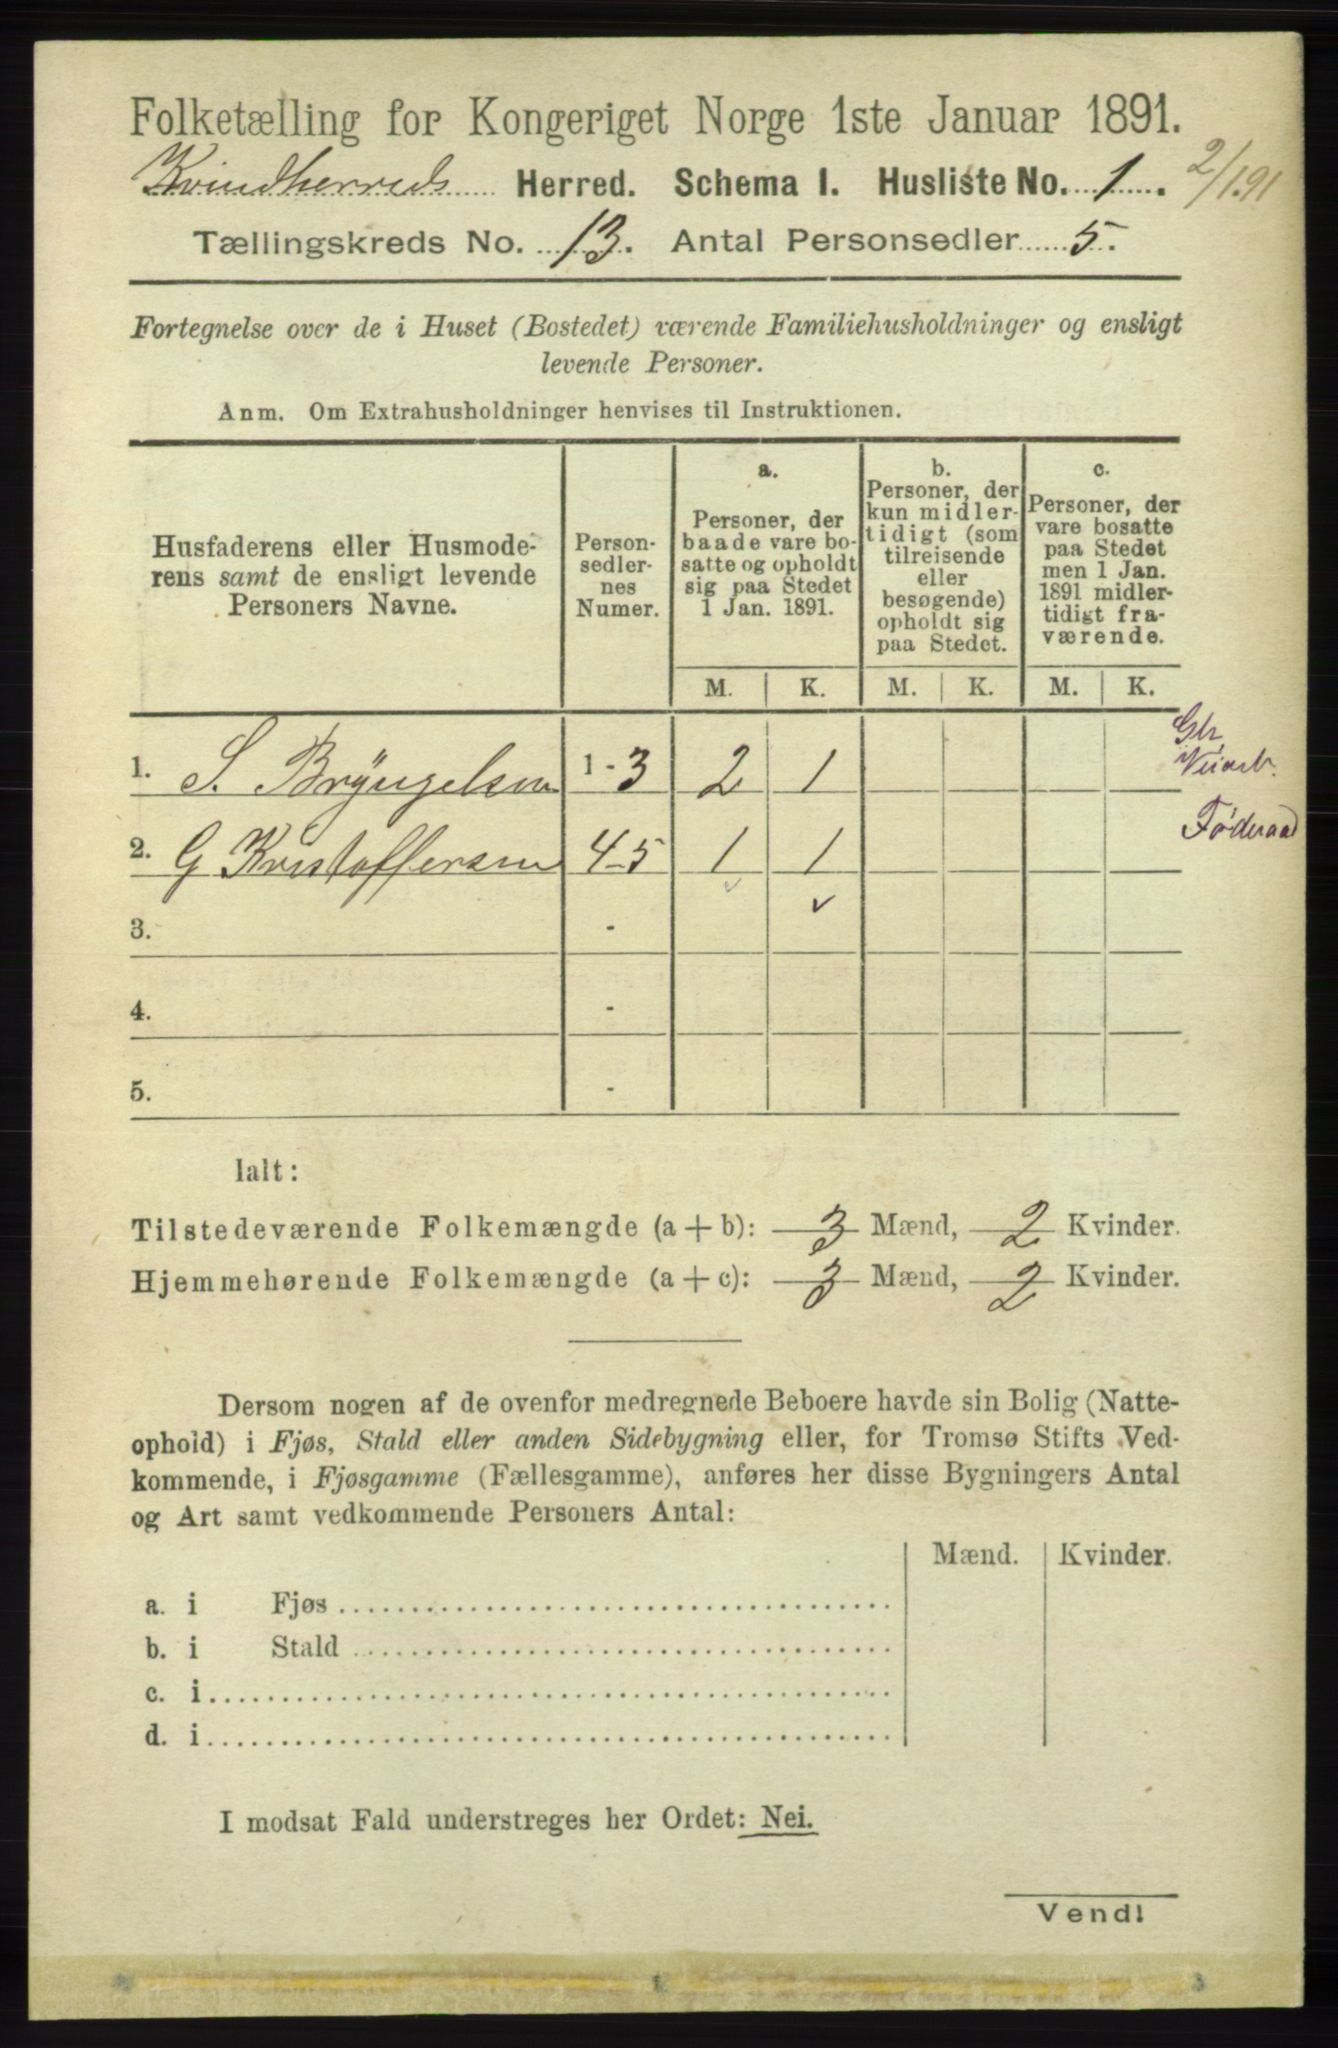 Folketælling for Kongeriget Norge 1ste Januar 1891.
Kvindherreds Herred. Schema I. Husliste No. 1. 2/1.91
Tællingskreds No. 13. Antal Personsedler 5.
Fortegnelse over de i Huset (Bostedet) værende Familiehusholdninger og ensligt
levende Personer.
Anm. Om Extrahusholdninger henvises til Instruktionen.
Husfaderens eller Husmode-
rens samt de ensligt levende
Personers Navne.
Person-
sedler-
nes
Numer.
a.
Personer, der
baade vare bo-
satte og opholdt
sig paa Stedet
1 Jan. 1891.
b.
Personer, der
kun midler-
tidigt (som
tilreisende
eller
besøgende)
opholdt sig
paa Stedet.
c.
Personer, der
vare bosatte
paa Stedet
men 1 Jan.
1891 midler-
tidigt fra-
værende.
M. K. M. K. M. K.
1. S. Bryngelsen 1-3 2 1
2. G Kristoffersen 4-5 1 1 Føderaad
3. -
4. -
5. -
Ialt:
Tilstedeværende Folkemængde (a+b): 3 Mænd, 2 Kvinder.
Hjemmehørende Folkemængde (a+c): 3 Mænd, 2 Kvinder.
Dersom nogen af de ovenfor medregnede Beboere havde sin Bolig (Natte-
ophold) i Fjøs, Stald eller anden Sidebygning eller, for Tromsø Stifts Ved-
kommende, i Fjøsgamme (Fællesgamme), anføres her disse Bygningers Antal
og Art samt vedkommende Personers Antal:
Mænd. Kvinder.
a. i Fjøs
b. i Stald
c. i
d. i
I modsat Fald understreges her Ordet: Nei.
Vend!